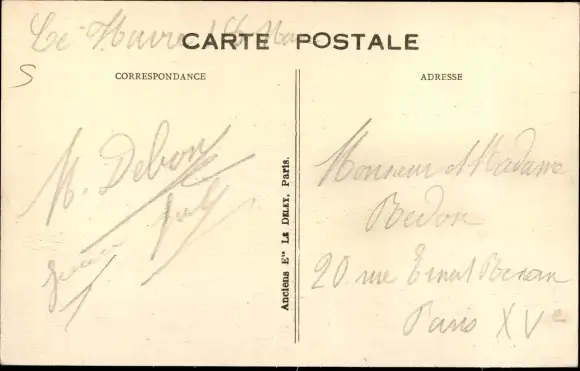 Le Havre 16 Mai
CARTE POSTALE
CORRESPONDANCE
M. Debon
Anciens Ets LE DELEY, Paris.
ADRESSE
Monsieur et Madame
Bedon
20 rue Ernest Renan
Paris XVe